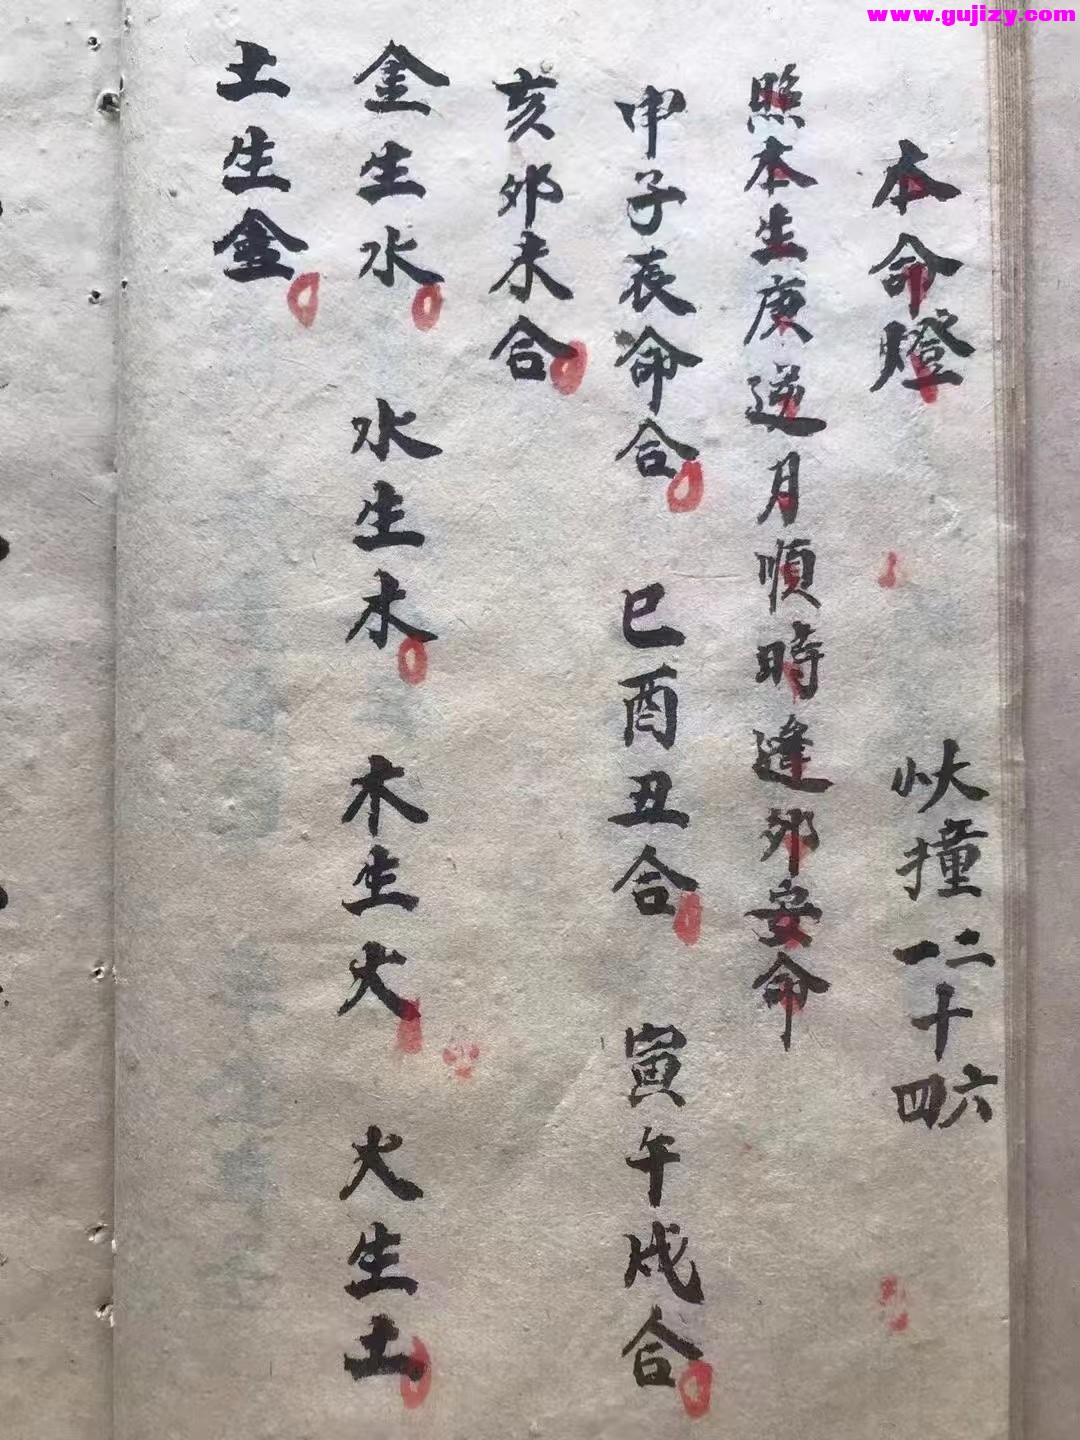 www.gujizy.com
本命燈 撞一二十四六
照本生庚逆月順時逢夘安命
申子辰命合 巳酉丑合 寅午戌合
亥夘未合
金生水 水生木 木生火 火生土
土生金